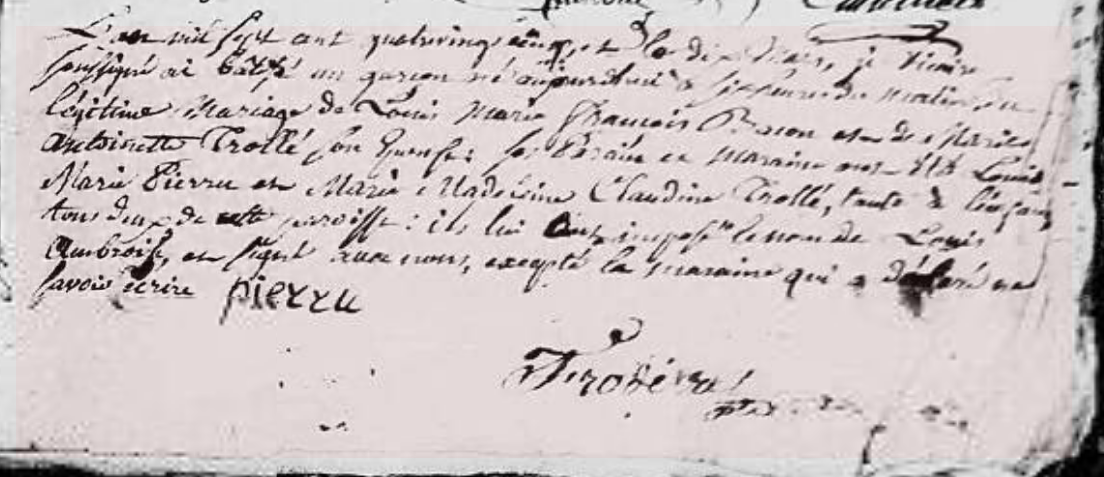 L'an mil sept cent quatrevingt cinq, et le dix Mars, je Vicaire
soussigné ai batisé un garçon né aujourd'hui à six heures du matin, du
légitime Mariage de Louis Marie François et de Marie
antoinette Trollé son épouse; ses Parain et maraine ont été Louis
Marie Pierru et Marie Madeleine Claudine Trollé, tante de l'enfant,
tous deux de cette paroisse: ils lui ont imposé le nom de Louis
Ambroise, et signé avec nous, excepté la maraine qui a déclaré ne
savoir écrire pierru